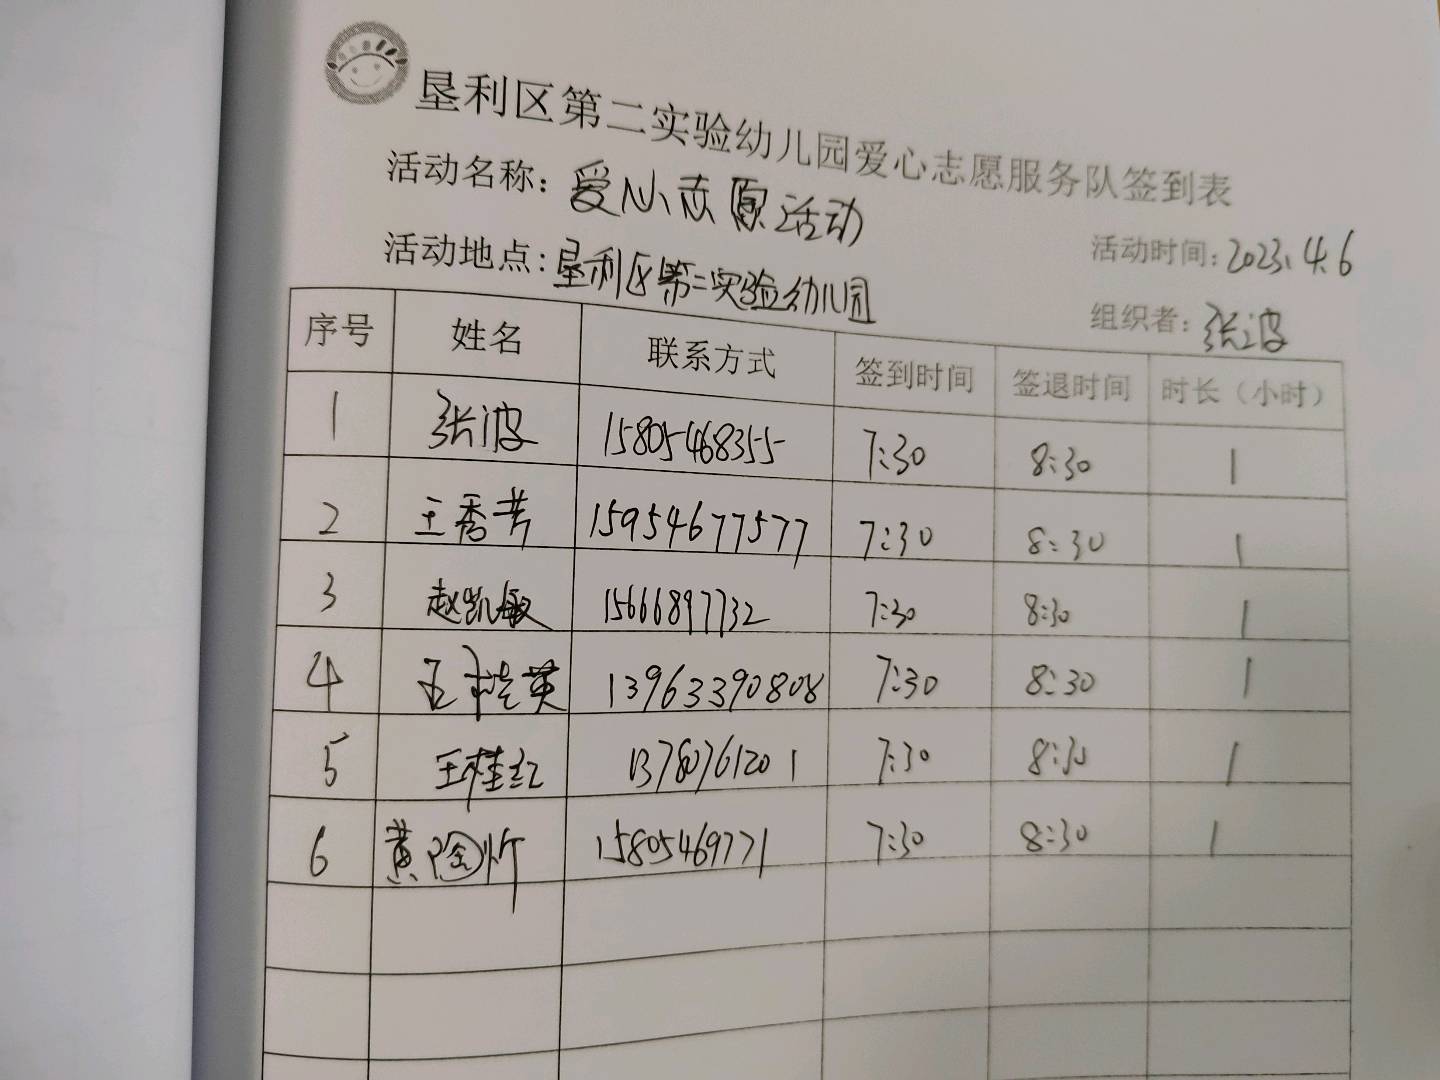 垦利区第二实验幼儿园爱心志愿服务队签到表
活动名称：爱心志愿活动
活动时间：2023.4.6
活动地点：垦利区第二实验幼儿园
组织者：张波
序号 姓名 联系方式 签到时间 签退时间 时长（小时）
1 张波 15805468355 7:30 8:30 1
2 王秀芳 15954677577 7:30 8:30 1
3 赵凯敏 15666897732 7:30 8:30 1
4 英 13963390808 7:30 8:30 1
5 王桂红 13780761201 7:30 8:30 1
6 黄陶忻 15805469771 7:30 8:30 1